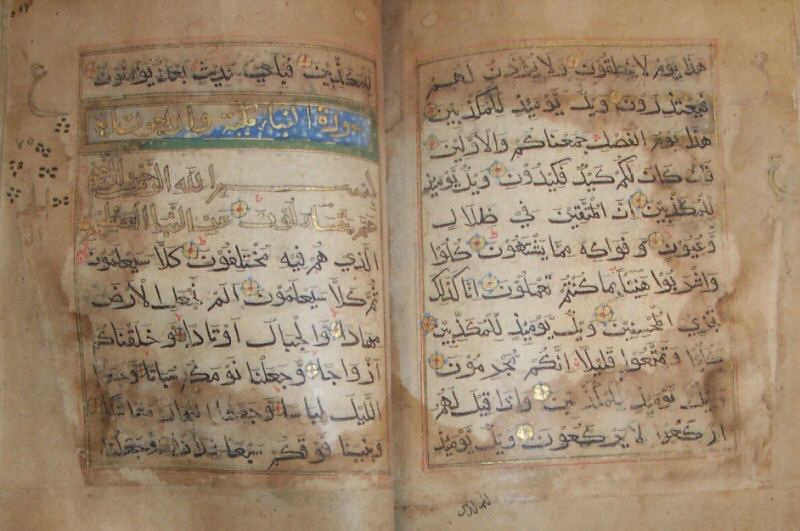 هذا يوم لا ينطقون ولا يؤذن لهم
فيعتذرون ويل يومئذ للمكذبين
هذا يوم الفصل جمعناكم والاولين
فان كان لكم كيد فكيدون ويل يومئذ
للمكذبين ان المتقين في ظلال
وعيون وفواكه مما يشتهون كلوا
واشربوا هنيئا بما كنتم تعملون انا كذلك
نجزي المحسنين ويل يومئذ للمكذبين
كلوا وتمتعوا قليلا انكم مجرمون
ويل يومئذ للمكذبين واذا قيل لهم
اركعوا لا يركعون ويل يومئذ
للمكذبين
للمكذبين فباي حديث بعده يؤمنون
سورة النبإ مكية واربعون اية
بسم الله الرحمن الرحيم
عم يتساءلون عن النبا العظيم
الذي هم فيه مختلفون كلا سيعلمون
ثم كلا سيعلمون الم نجعل الارض
مهادا والجبال اوتادا وخلقناكم
ازواجا وجعلنا نومكم سباتا وجعلنا
الليل لباسا وجعلنا النهار معاشا
وبنينا فوقكم سبعا شدادا وجعلنا